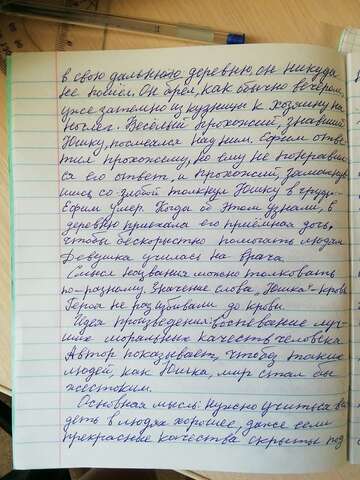 в свою дальнюю деревню, он никуда
не пошёл. Он брёл, как обычно вечером,
уже затемно из кузницы к хозяину на
ночлег. Весёлый прохожий, знавший
Юшку, посмеялся над ним. Ефим отве-
тил прохожему, но ему не понравил-
ся его ответ, и прохожий, замахнув-
шись со злобой толкнул Юшку в грудь.
Ефим умер. Когда об этом узнали, в
деревню приехала его приёмная дочь,
чтобы бескорыстно помогать людям
Девушка училась на врача.
Смысл названия можно толковать
по-разному. Значение слова "Юшка" - кровь
Героя не раз избивали до крови.
Идея произведения: воспевание луч-
ших моральных качеств человека
Автор показывает, что без таких
людей, как Юшка, мир стал бы
жестоким.
Основная мысль: нужно учиться ви-
деть в людях хорошее, даже если
прекрасные качества скрыты под